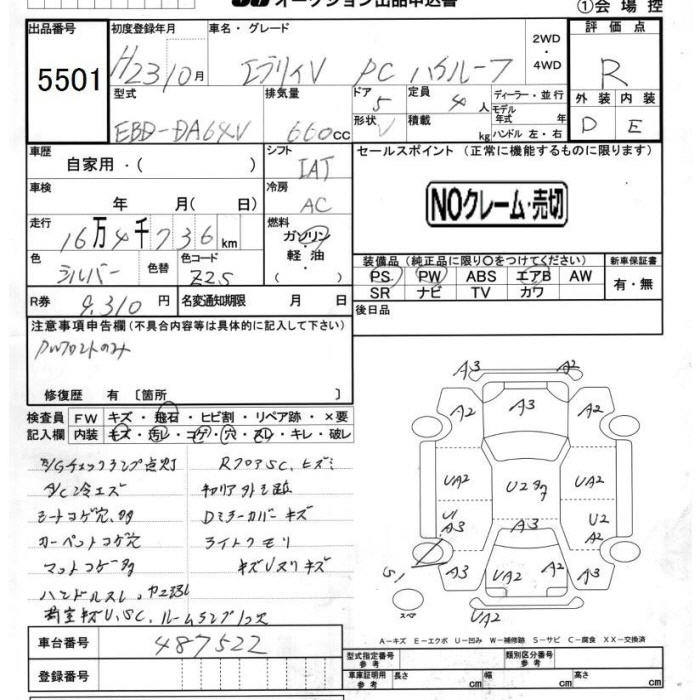 オークション出品申込書
①会場控
出品番号
5501
初度登録年月
H23 10月
車名・グレード
エブリイV PC ハイルーフ
2WD
・
4WD
評価点
R
外装 内装
D E
型式
EBD-DA64V
排気量
660cc
ドア
5
形状
V
定員
4人
積載
kg
ディーラー・並行
モデル
年式 年
ハンドル 左・右
車歴
自家用・( )
シフト
IAT
セールスポイント (正常に機能するものに限ります)
NOクレーム・売切
車検
年 月( 日)
冷房
AC
走行
16万4千736km
燃料
ガソリン
・
軽油
・
( )
色
シルバー
色替
色コード
Z2S
装備品 (純正品に限り○をつけてください)
PS PW ABS エアB AW
SR ナビ TV カワ
新車保証書
有・無
R券 9,310円
名変通知期限 月 日
後日品
注意事項申告欄(不具合内容等は具体的に記入して下さい)
PWフロントのみ
修復歴 有 〔箇所 〕
検査員 FW キズ・飛石・ヒビ割・リペア跡・×要
記入欄 内装 キズ・汚レ・コゲ・穴・スレ・キレ・破レ
A/Gチェックランプ点灯
RフロアSC、ヒズミ
A/C冷エズ
シートコゲ穴、多
Dミラーカバーキズ
カーペットコゲ穴
ライトクモリ
マットコゲ多
キズUスリキズ
ハンドルスレ
荷室キズU、SC、ルームランプ
A3 A2
A2 A3 A2
UA2 U2多 UA2
U1 A3 U2 A2
A3
A3 UA2 A2 A2
S1
UA2
スペア
A-キズ E-エクボ U-凹み W-補修跡 S-サビ C-腐食 XX-交換済
車台番号 487522
登録番号
型式指定番号
参考
類別区分番号
参考
車庫証明用
参考
長さ cm 幅 cm 高さ cm